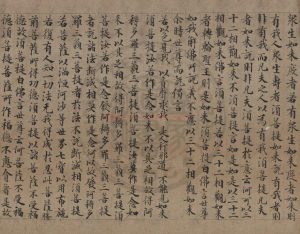 眾生如來度者若有眾生如來度者如來則
有我人眾生壽者須菩提如來說有我者則
非有我而凡夫之人以為有我須菩提凡夫
者如來說則非凡夫須菩提於意云何可以三
十二相觀如來不須菩提言如是如是以三十二
相觀如來佛言須菩提若以三十二相觀如來
者轉輪聖王則是如來須菩提白佛言世尊
如我解佛所說義不應以三十二相觀如來
爾時世尊而說偈言
若以色見我 以音聲求我 是人行邪道 不能見如來
須菩提汝若作是念如來不以具足相故得阿
耨多羅三藐三菩提須菩提莫作是念如
來不以具足相故得阿耨多羅三藐三菩提須
菩提汝若作是念發阿耨多羅三藐三菩提
者說諸法斷滅相莫作是念何以故發阿耨多
羅三藐三菩提心者於法不說斷滅相須菩提
若菩薩以滿恒河沙等世界七寶布施
若復有人知一切法無我得成於忍此菩薩勝
前菩薩所得功德須菩提以諸菩薩不受福
德故須菩提白佛言世尊云何菩薩不受福
德須菩提菩薩所作福德不應貪著是故